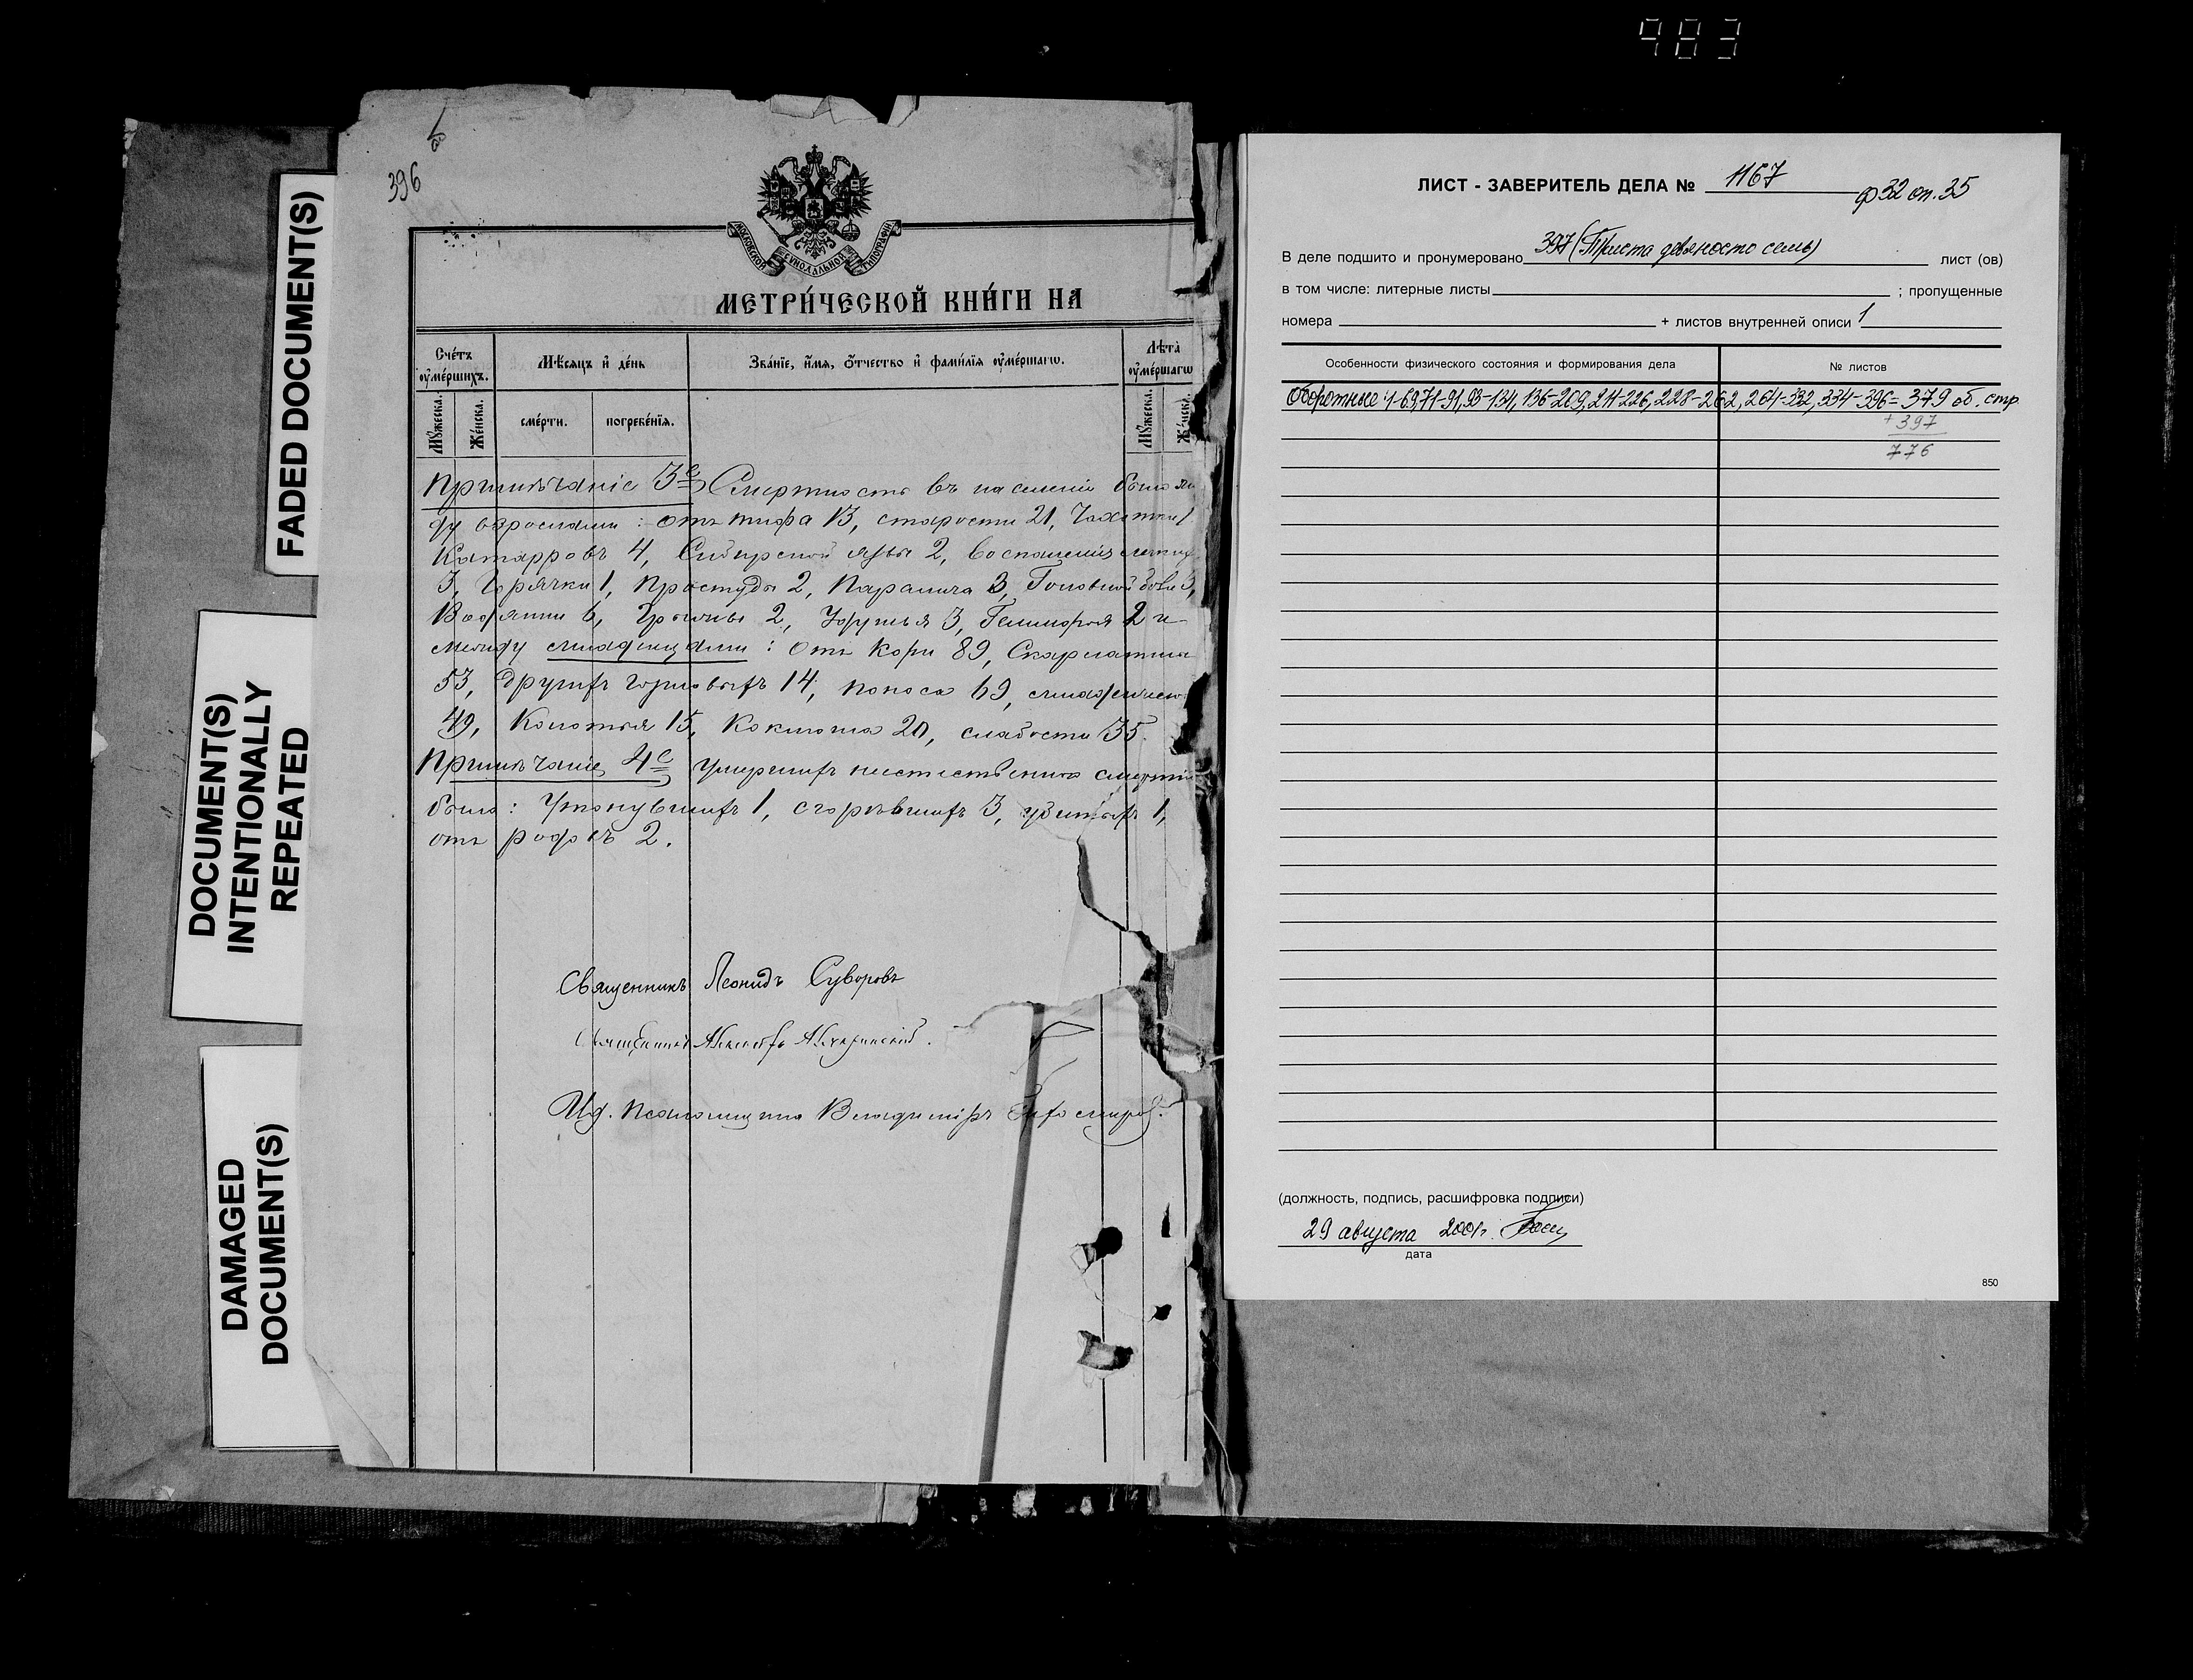 983
FADED DOCUMENT(S)
DOCUMENT(S)
INTENTIONALLY
REPEATED
DAMAGED
DOCUMENT(S)
396
МОСКОВСКОЙ СѴНОДАЛЬНОЙ ТИПОГРАФІИ
МЕТРИ́ЧЕСКОЙ КНИ́ГИ НА
Сче́тъ оу҆ме́ршихъ.
Мѣ́сяцъ и҆ де́нь
Зва́нїе, и҆́мя, ѻ҆́тчество и҆ фами́лїя оу҆ме́ршагѡ.
Лѣта̀ оу҆ме́ршагѡ
Мꙋ́жеска.
Же́нска.
сме́рти.
погребе́нїя.
Мꙋ́жеска.
Же́нска.
Примѣчаніе 3е Смертность въ населеніи была
ду взрослыми: отъ тифа 13, старости 21, Чахотки
Катарровъ 4, Сибирской язвы 2, воспаленія легких
3, Горячки 1, Простуды 2, Паралича 3, Головной боли 3,
Водянки 6, Грыжи 2, Удушья 3, Геммороя 2 и
между младенцами: отъ Кори 89, Скарлатины
53, другихъ горловыхъ 14, поноса 69,
49, Колотья 15, Коклюша 20, слабости 35.
Примѣчаніе 4е Умершихъ неестественною смертію
было: Утонувшихъ 1, сгорѣвшихъ 3, убитыхъ 1,
отъ родовъ 2.
Священникъ Леонидъ Суворовъ
Священникъ
И.д. псаломщика Владиміръ
ЛИСТ - ЗАВЕРИТЕЛЬ ДЕЛА № 1167
ф32 оп.35
В деле подшито и пронумеровано 397 (Триста девяносто семь) лист (ов)
в том числе: литерные листы ; пропущенные
номера + листов внутренней описи 1
Особенности физического состояния и формирования дела
№ листов
Оборотные 1-69,71-91,93-134,136-209,211-226,228-262,264-332,334-396=379 об. стр
+397
776
(должность, подпись, расшифровка подписи)
29 августа 2001г.
дата
850